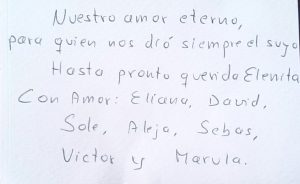 Nuestro amor eterno,
para quien nos dió siempre el suyo
Hasta pronto querida Elenita
Con Amor: Eliana, David,
Sole, Aleja, Sebas,
Victor y Marula.